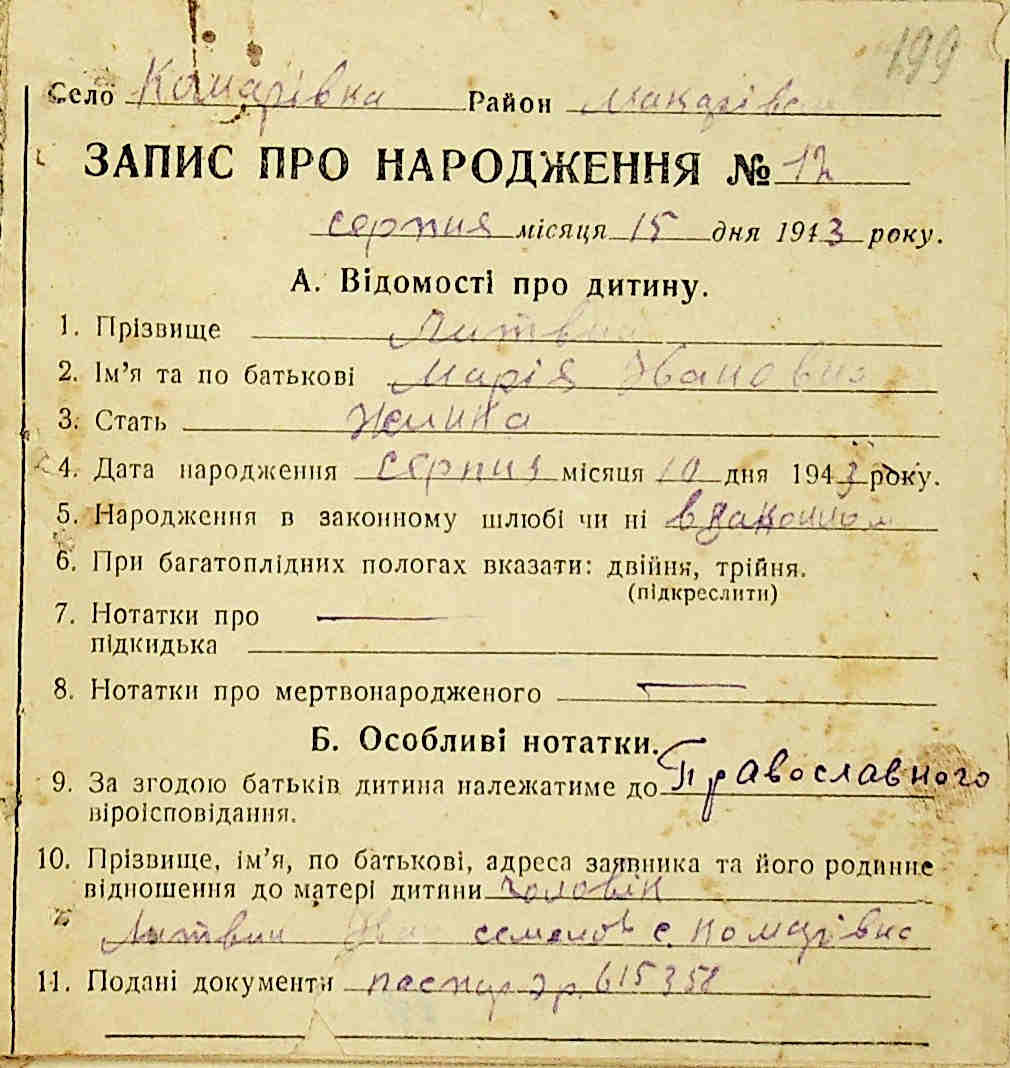 199
Село Комарівка Район Макарівськ
ЗАПИС ПРО НАРОДЖЕННЯ № 12
серпня місяця 15 дня 1943 року.
А. Відомості про дитину.
1. Прізвище Литвин
2. Ім'я та по батькові Марія Івановна
3. Стать
4. Дата народження серпня місяця 10 дня 1943 року.
5. Народження в законному шлюбі чи ні в законном
6. При багатоплідних пологах вказати: двійня, трійня.
(підкреслити)
7. Нотатки про
підкидька
8. Нотатки про мертвонародженого
Б. Особливі нотатки.
9. За згодою батьків дитина належатиме до Православного
віроісповідання.
10. Прізвище, ім'я, по батькові, адреса заявника та його родинне
відношення до матері дитини чоловік
Литвин Іван семенов с. Комарівка
11. Подані документи 615358